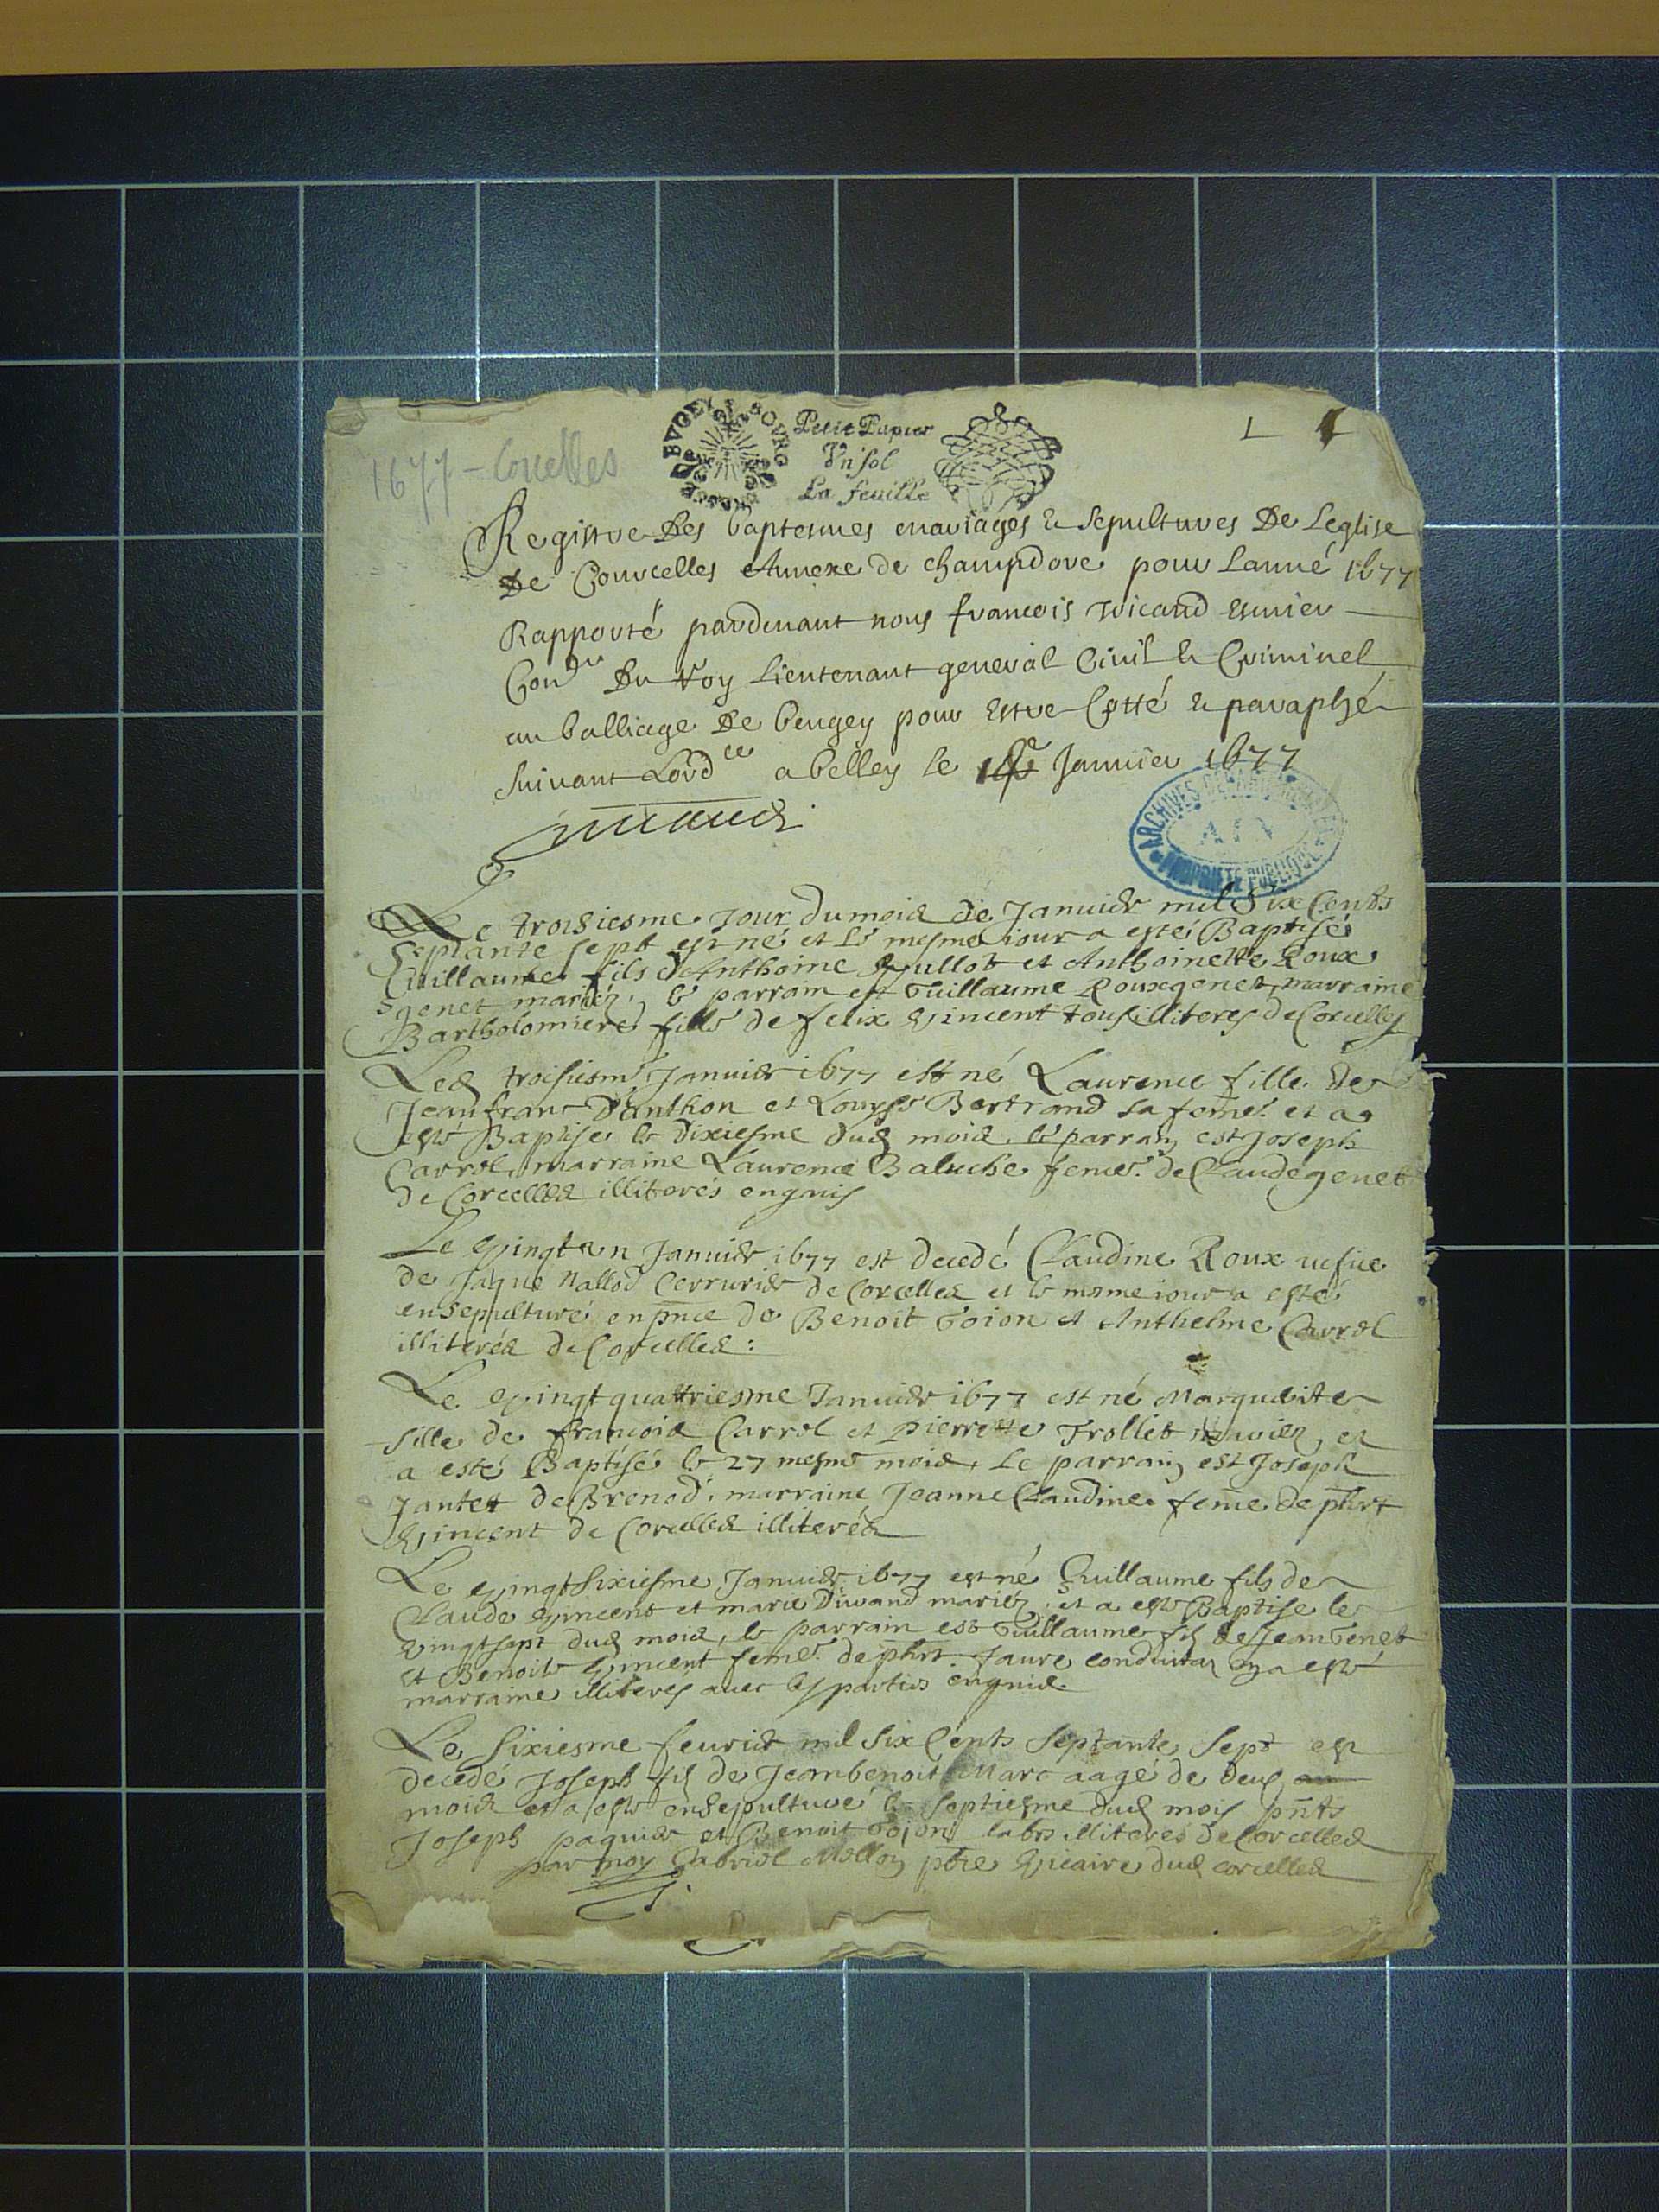 1677 - Corcelles
BVGEY BOVRG
Petit Papier
Vn sol
La feuille
1
Registre Des baptesmes mariages & sepultures De Leglise
De Courcelles Annexe de champdore pour Lanné 1677
Rapporté pardeuant nous francois escuier
Con.er Du Roy Lieutenant general Ciuil & Criminel
au balliage De beugey pour Estre Cotté & paraphé
suiuant Lord.ce a belley le Januier 1677
ARCHIVES DEPARTEMENTALES
AIN
PROPRIETE PUBLIQUE
Le troisiesme Jour du mois de Januier mil Six Cents
Septante sept est né et le mesme iour a esté Baptisé
Guillaume fils d'Anthoine Gullot et Anthoinette Roux
genet mariez, le parrain est Guillaume Rouxgenet, marraine
Bartholomiere fille de felix Vincent tous illiteres de Corcelles
Led troisiesme Januier 1677 est né Laurence fille de
Jeanfranc Danthon et Louyse Bertrand sa feme et a
esté Baptise le dixiesme dud mois, le parrain est Joseph
Carrel, marraine Laurence Baluche feme de Claude genet
de Corcelles illiterés enquis
Le Vingt un Januier 1677 est decedé Claudine Roux vefue
de Jaque Nallod Cerrurier de Corcelles et le mesme iour a esté
ensepulturé en pnce de Benoit Goion et Anthelme Carrel
illiterés de Corcelles :
Le Vingt quattriesme Januier 1677 est né Marguerite
fille de francois Carrel et pierrette Trollet mariez, et
a esté Baptisé le 27 mesme mois, Le parrain est Joseph
Jantet de Brenod, marraine Jeanne Claudine feme de phrt
Vincent de Corcelles illiterés
Le Vingt sixiesme Januier 1677 est né Guillaume fils de
Claude Vincent et marie Diuand mariez, et a esté Baptise le
Vingt sept dud mois, le parrain est Guillaume fils de Jean Genet
et Benoite Vincent feme de phrt faure a esté
marraine illiteres auec les parties enquis.
Le Sixiesme feurier mil six Cents Septante Sept est
decedé Joseph fils de Jeanbenoit Marc aagé de deux an
mois et a esté ensepulturé le septiesme dud mois pnts
Joseph paquier et Benoit Goion labrs illiterés de Corcelles
par moy Gabriel Mollon pbre Vicaire dud corcelles